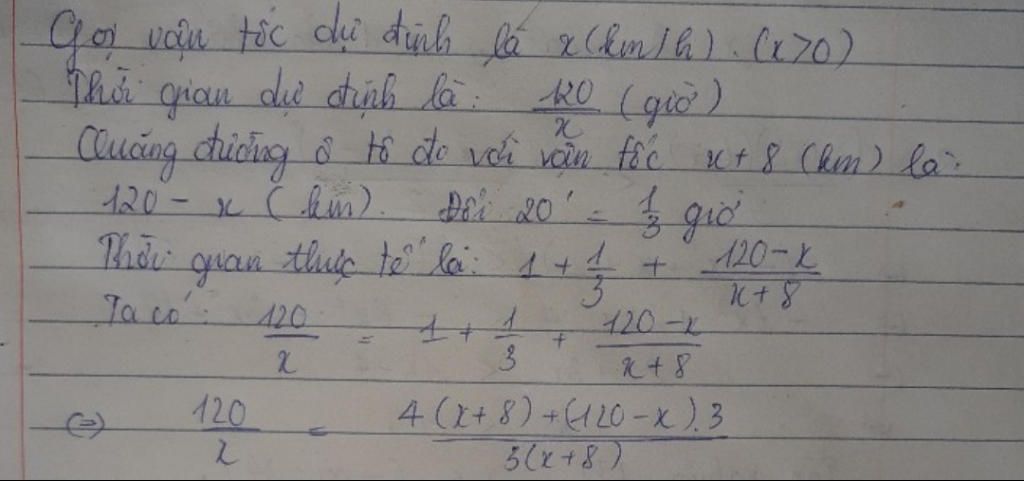 Gọi vận tốc dự định là x(km/h). (x>0)
Thời gian dự định là: 120/x (giờ)
Quãng đường ô tô đo với vận tốc x+8 (km) là:
120 - x (km). Đổi 20' = 1/3 giờ
Thời gian thực tế là: 1 + 1/3 + (120-x)/(x+8)
Ta có: 120/x = 1 + 1/3 + (120-x)/(x+8)
(=) 120/x = (4(x+8)+(120-x).3)/(3(x+8))